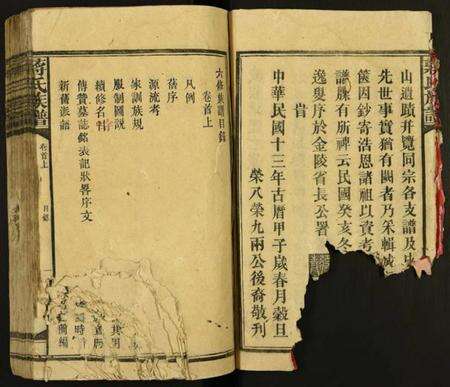 山遺蹟并覽同宗各支譜及
先世事實猶有闕者乃采輯
篋因鈔寄浩恩諸祖以資考
譜諒有所裨云民國癸亥冬
逸叟序於金陵省長公署
旹
中華民國十三年古曆甲子歲春月穀旦
榮八榮九兩公後裔敬刋
族譜
六修族譜目錄
卷首上
舊序
凡例
源流考
家訓族規
服制圖說
續修名目
傳贊墓誌銘表記狀畧序文
新舊派語
蔣氏族譜
卷首上
目錄